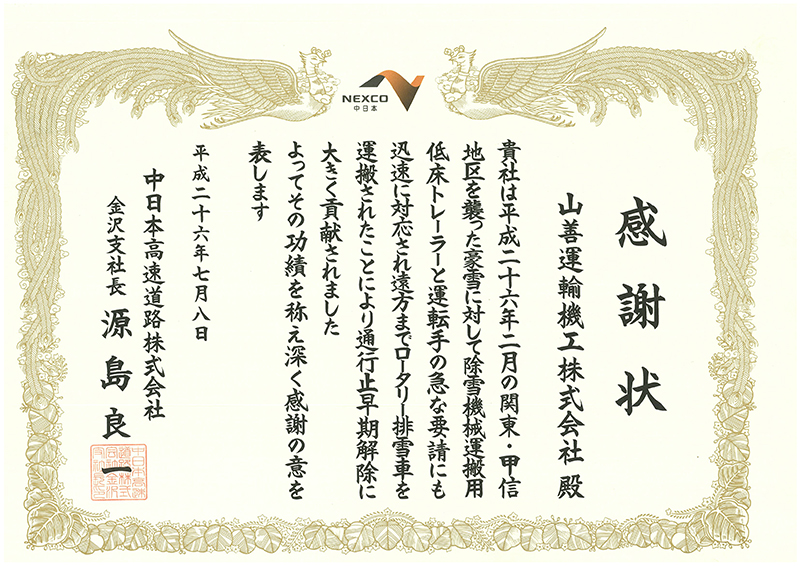 NEXCO
中日本
感謝状
山善運輸機工株式会社 殿
貴社は平成二十六年二月の関東・甲信
地区を襲った豪雪に対して除雪機械運搬用
低床トレーラーと運転手の急な要請にも
迅速に対応され遠方までロータリー排雪車を
運搬されたことにより通行止早期解除に
大きく貢献されました
よってその功績を称え深く感謝の意を
表します
平成二十六年七月八日
中日本高速道路株式会社
金沢支社長 源島良一